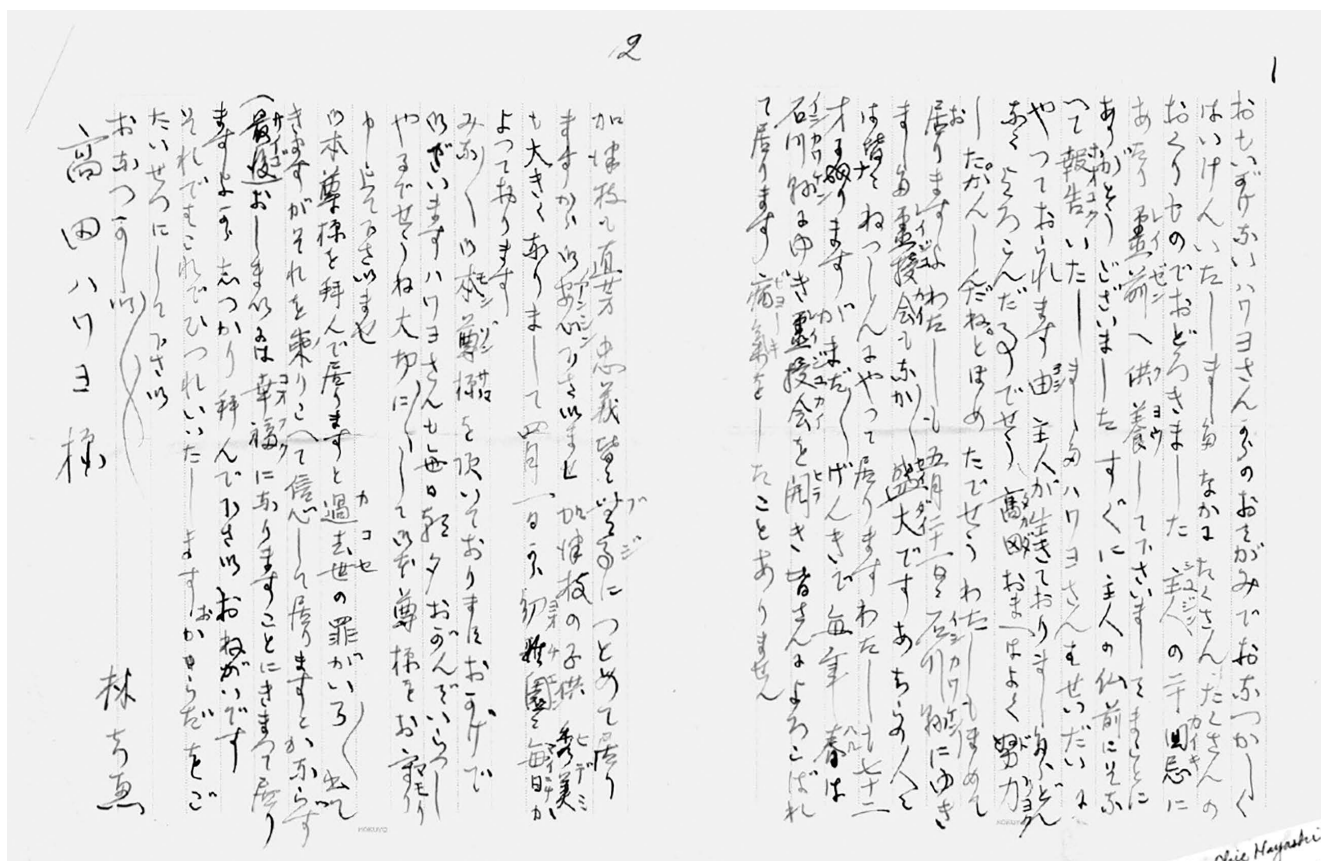 1
おもいがけないハワヨさんからのおてがみでおなつかしく
はいけんいたしました なかにたくさんたくさんの
おくりものでおどろきました 主人の二十回忌に
あたり 霊前へ供養して下さいましてまことに
ありがとうございました すぐに主人の仏前にそな
へて報告いたしました ハワヨさんもせいだいに
やっておられます由 主人が生きておりましたらどん
なによろこんだ事でせう 高田おまへはよく努力
した。かんしんだねとほめたでせう わたしもほめて
居ります わたしも五月二十一日石川縣にゆき
ました 霊授会もなかなか盛大です あちらの人々
は皆々ねっしんにやって居ります わたしも七十二
才になりますがまだまだげんきで毎年春は
石川縣にゆき霊授会を開き皆さんによろこばれ
て居ります 病氣をしたことありません
2
加津枝も直芳 忠義皆々無事につとめて居り
ますから御安心下さいませ 加津枝の子供 秀美
も大きくなりまして四月一日から幼稚園に毎日か
よっております
みなみな御本尊様を頂いておりますおかげで
御ざいます ハワヨさんも毎日朝夕おがんでいらっし
やるでせうね 大切に大切にして御本尊様をお守り
申し上て下さいませ
御本尊様を拝んで居りますと過去世の罪がいろいろ出て
きますがそれを乗りこへて信心して居りますとかならず
(最後)おしまいには幸福になりますことにきまって居り
ますから しっかり拝んで下さい おねがいです
それでもこれでひつれいいたします おからだをご
たいせつにして下さい
おなつかしい
高田ハワヨ様
林 ちゑ
HOKUYO
Chie Hayashi